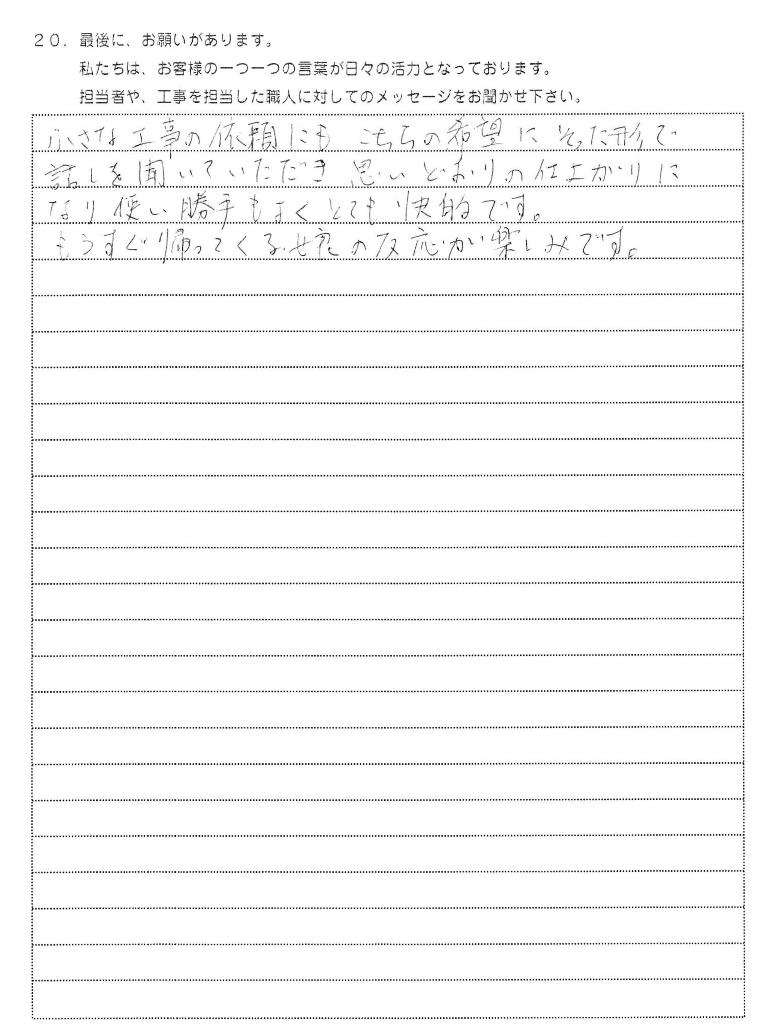 20. 最後に、お願いがあります。
私たちは、お客様の一つ一つの言葉が日々の活力となっております。
担当者や、工事を担当した職人に対してのメッセージをお聞かせ下さい。
小さな工事の依頼にも こちらの希望に そった形で
話しを聞いていただき 思いどおりの仕上がりに
なり使い勝手もよくとても快適です。
もうすぐ帰ってくる の反応が楽しみです。